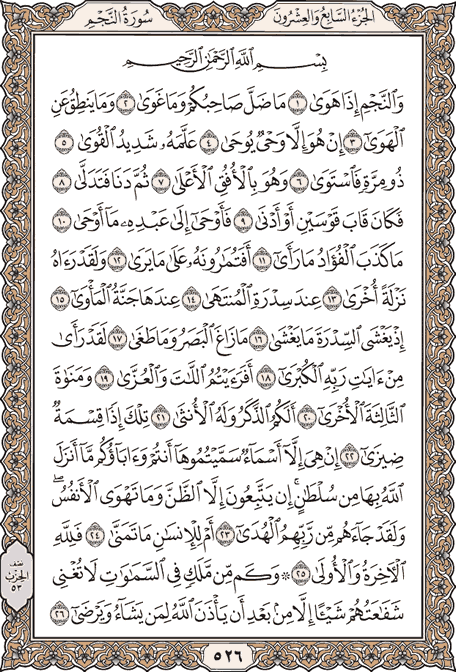 سُورَةُ النَّجْمِ
الجُزءُ السَّابِعُ وَالعِشْرُونَ
بِسْمِ ٱللَّهِ ٱلرَّحْمَٰنِ ٱلرَّحِيمِ
وَٱلنَّجْمِ إِذَا هَوَىٰ ١ مَا ضَلَّ صَاحِبُكُمْ وَمَا غَوَىٰ ٢ وَمَا يَنطِقُ عَنِ
ٱلْهَوَىٰٓ ٣ إِنْ هُوَ إِلَّا وَحْىٌ يُوحَىٰ ٤ عَلَّمَهُۥ شَدِيدُ ٱلْقُوَىٰ ٥
ذُو مِرَّةٍ فَٱسْتَوَىٰ ٦ وَهُوَ بِٱلْأُفُقِ ٱلْأَعْلَىٰ ٧ ثُمَّ دَنَا فَتَدَلَّىٰ ٨
فَكَانَ قَابَ قَوْسَيْنِ أَوْ أَدْنَىٰ ٩ فَأَوْحَىٰٓ إِلَىٰ عَبْدِهِۦ مَآ أَوْحَىٰ ١٠
مَا كَذَبَ ٱلْفُؤَادُ مَا رَأَىٰٓ ١١ أَفَتُمَٰرُونَهُۥ عَلَىٰ مَا يَرَىٰ ١٢ وَلَقَدْ رَءَاهُ
نَزْلَةً أُخْرَىٰ ١٣ عِندَ سِدْرَةِ ٱلْمُنتَهَىٰ ١٤ عِندَهَا جَنَّةُ ٱلْمَأْوَىٰٓ ١٥
إِذْ يَغْشَى ٱلسِّدْرَةَ مَا يَغْشَىٰ ١٦ مَا زَاغَ ٱلْبَصَرُ وَمَا طَغَىٰ ١٧ لَقَدْ رَأَىٰ
مِنْ ءَايَٰتِ رَبِّهِ ٱلْكُبْرَىٰٓ ١٨ أَفَرَءَيْتُمُ ٱللَّٰتَ وَٱلْعُزَّىٰ ١٩ وَمَنَوٰةَ
ٱلثَّالِثَةَ ٱلْأُخْرَىٰٓ ٢٠ أَلَكُمُ ٱلذَّكَرُ وَلَهُ ٱلْأُنثَىٰ ٢١ تِلْكَ إِذًا قِسْمَةٌ
ضِيزَىٰٓ ٢٢ إِنْ هِىَ إِلَّآ أَسْمَآءٌ سَمَّيْتُمُوهَآ أَنتُمْ وَءَابَآؤُكُم مَّآ أَنزَلَ
ٱللَّهُ بِهَا مِن سُلْطَٰنٍ ۚ إِن يَتَّبِعُونَ إِلَّا ٱلظَّنَّ وَمَا تَهْوَى ٱلْأَنفُسُ ۖ
وَلَقَدْ جَآءَهُم مِّن رَّبِّهِمُ ٱلْهُدَىٰٓ ٢٣ أَمْ لِلْإِنسَٰنِ مَا تَمَنَّىٰ ٢٤ فَلِلَّهِ
ٱلْءَاخِرَةُ وَٱلْأُولَىٰ ٢٥ ۞ وَكَم مِّن مَّلَكٍ فِى ٱلسَّمَٰوَٰتِ لَا تُغْنِى
شَفَٰعَتُهُمْ شَيْـًٔا إِلَّا مِنۢ بَعْدِ أَن يَأْذَنَ ٱللَّهُ لِمَن يَشَآءُ وَيَرْضَىٰٓ ٢٦
نصف
الحزب
٥٣
٥٢٦